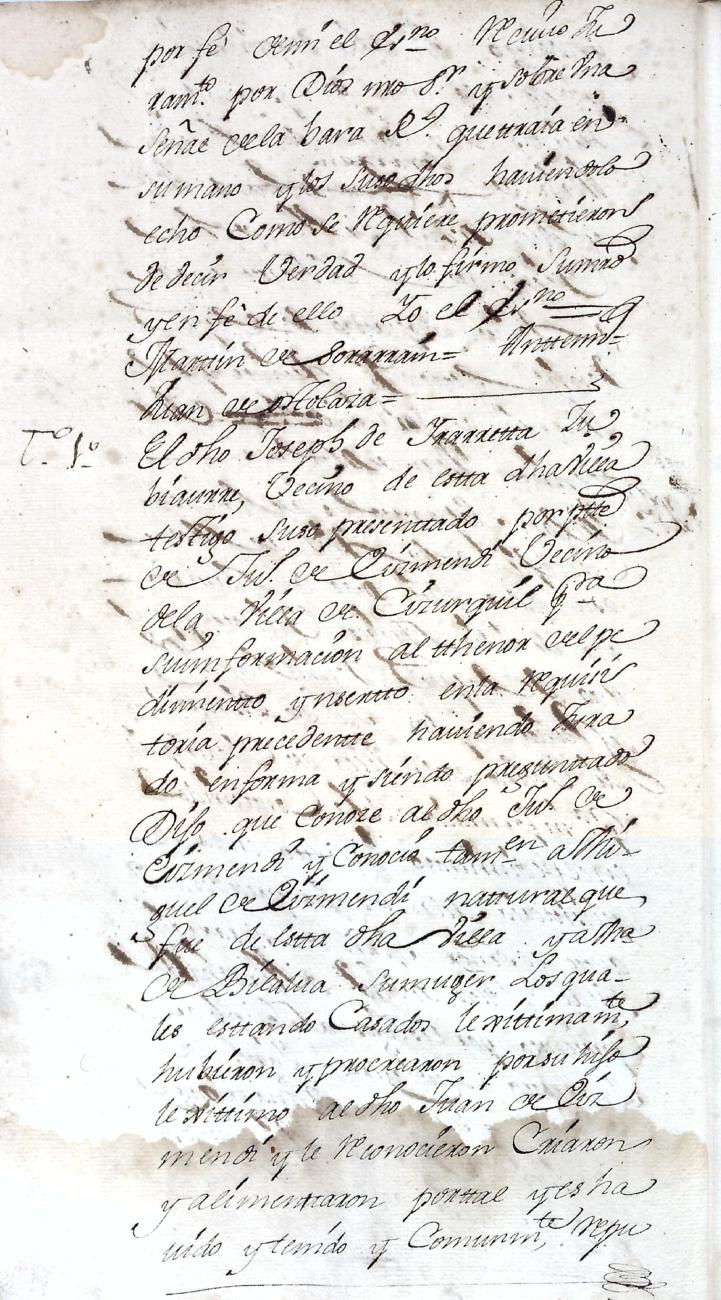 por fè de mi el ess.no Reciuio Ju
ram.to por Dios nro S.r y sobre vna
señal de la bara R.l que ttraia en
su mano y los suso dhos hauiendolo
echo Como se Requiere prometieron
de decir Verdad y lo firmo su mrd
y en fè de ello Yo el ess.no
Martin de Sorarrain= Antte mi=
Juan de ostolaza=
T.o 1.o
El dho Joseph de Yrarretta Ju
biaurre, Vecino de estta dha Villa
testigo suso presenttado por ptte
de Ju.o de Eizmendi Vecino
de la Villa de Cizurquil p.ra
su informacion al tthenor del pe
dimientto ynsertto en la Requisi
toria precedentte hauiendo Jura
do en forma y siendo pregunttado
Dijo que Conoze al dho Ju.o de
Eizmendi y Conociò tam.en a Mi=
guel de Eizmendi natturae que
fue de estta dha Villa y a Ma
de Bilauia su muger Los qua=
les esttando Casados lexittimam.te
hubieron y procrearon por su hijo
lexittimo al dho Juan de Eiz
mendi y le Reconocieron Criaron
y alimenttaron por ttal y es ha
uido y tenido y Comunm.te, repu